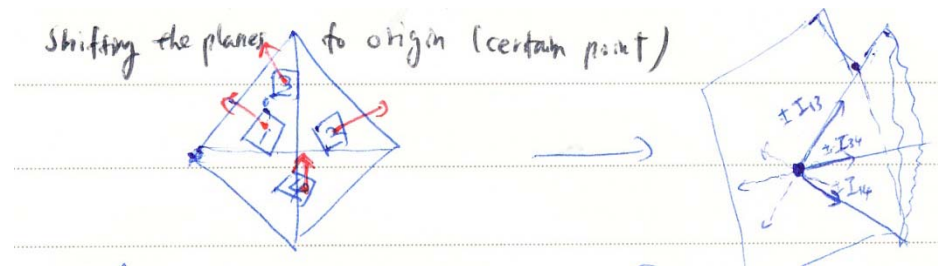 Shifting the planes to origin (certain point)
1
2
3
4
± I13
± I34
± I14